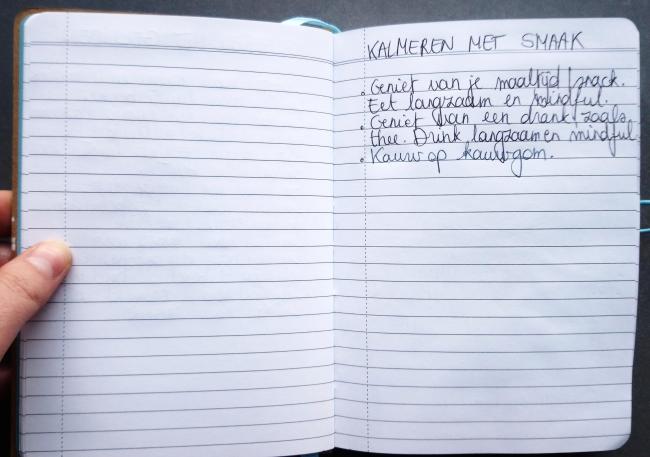 KALMEREN MET SMAAK
. Geniet van je maaltijd/snack.
Eet langzaam en mindful.
. Geniet van een drank zoals
thee. Drink langzaam en mindful.
. Kauw op kauwgom.